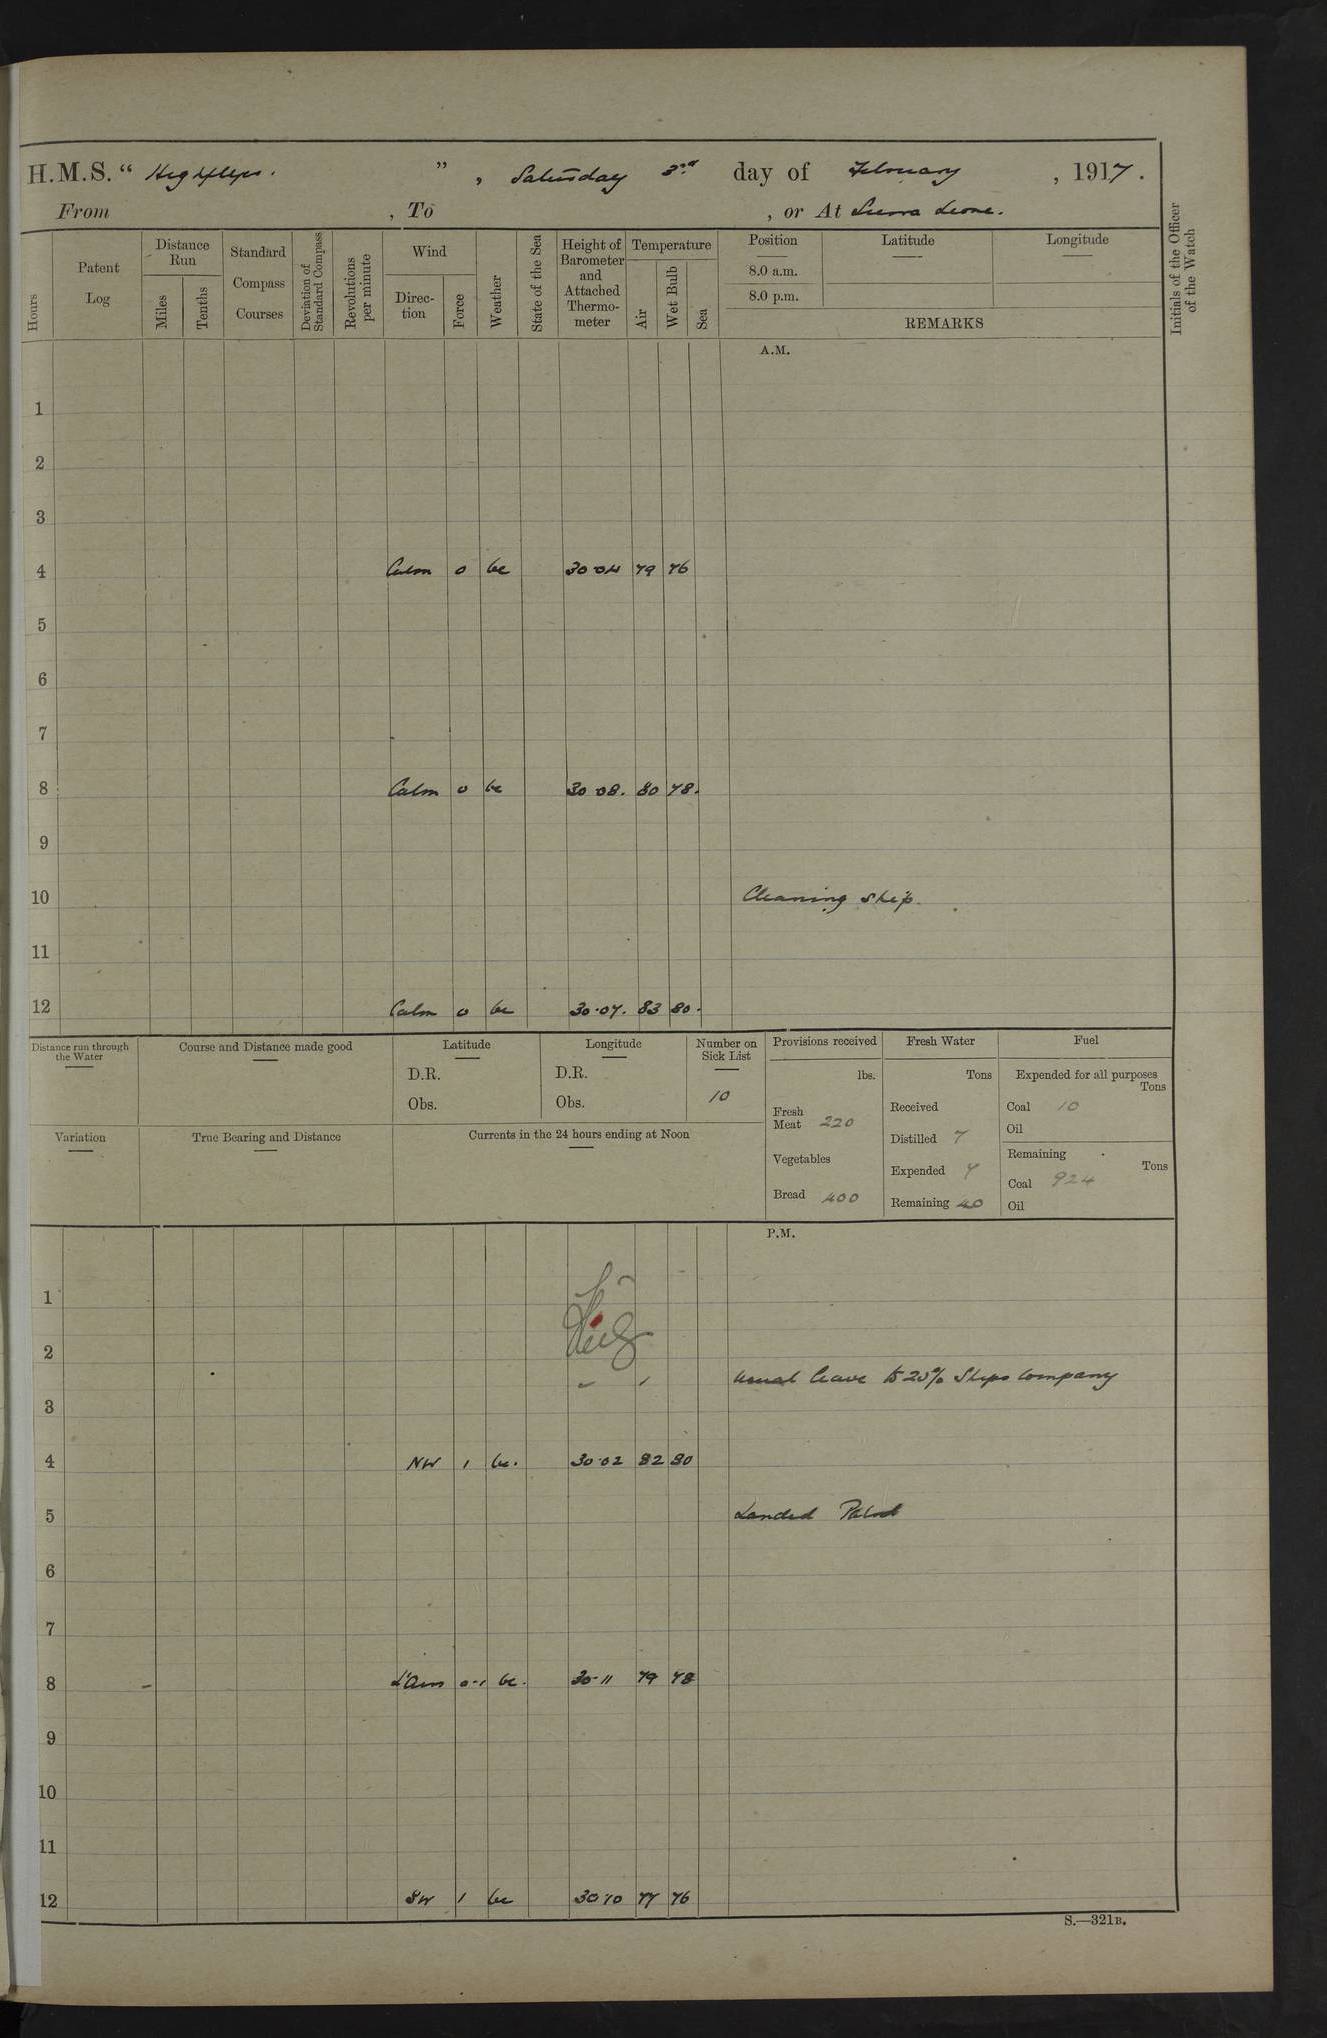 H.M.S. " Highflyer. " , Saturday 3rd day of February , 1917.
From , To , or At Sierra Leone.
Hours Patent Log Distance Run Miles Tenths Standard Compass Courses Deviation of Standard Compass Revolutions per minute Wind Direc-tion Force Weather State of the Sea Height of Barometer and Attached Thermo-meter Temperature Air Wet Bulb Sea Position Latitude Longitude
8.0 a.m.
8.0 p.m.
REMARKS
Initials of the Officer of the Watch
A.M.
1
2
3
4 Calm 0 bc 30·04 79 76
5
6
7
8 Calm 0 bc 30·08. 80 78.
9
10 Cleaning ship.
11
12 Calm 0 bc 30·07. 83 80.
Distance run through the Water Course and Distance made good Latitude Longitude Number on Sick List Provisions received Fresh Water Fuel
D.R. D.R. lbs. Tons Expended for all purposes Tons
Obs. Obs. 10 Fresh Meat 220 Received Coal 10
Variation True Bearing and Distance Currents in the 24 hours ending at Noon Distilled 7 Oil
Vegetables Expended 7 Remaining Tons
Coal 924
Bread 400 Remaining 40 Oil
P.M.
1
2
usual leave to 25% Ships Company
3
4 NW 1 bc. 30·02 82 80
5 Landed Patrol
6
7
8 L'Airs 0-1 bc. 30·11 79 78
9
10
11
12 SW 1 bc 30·10 77 76
S.—321B.